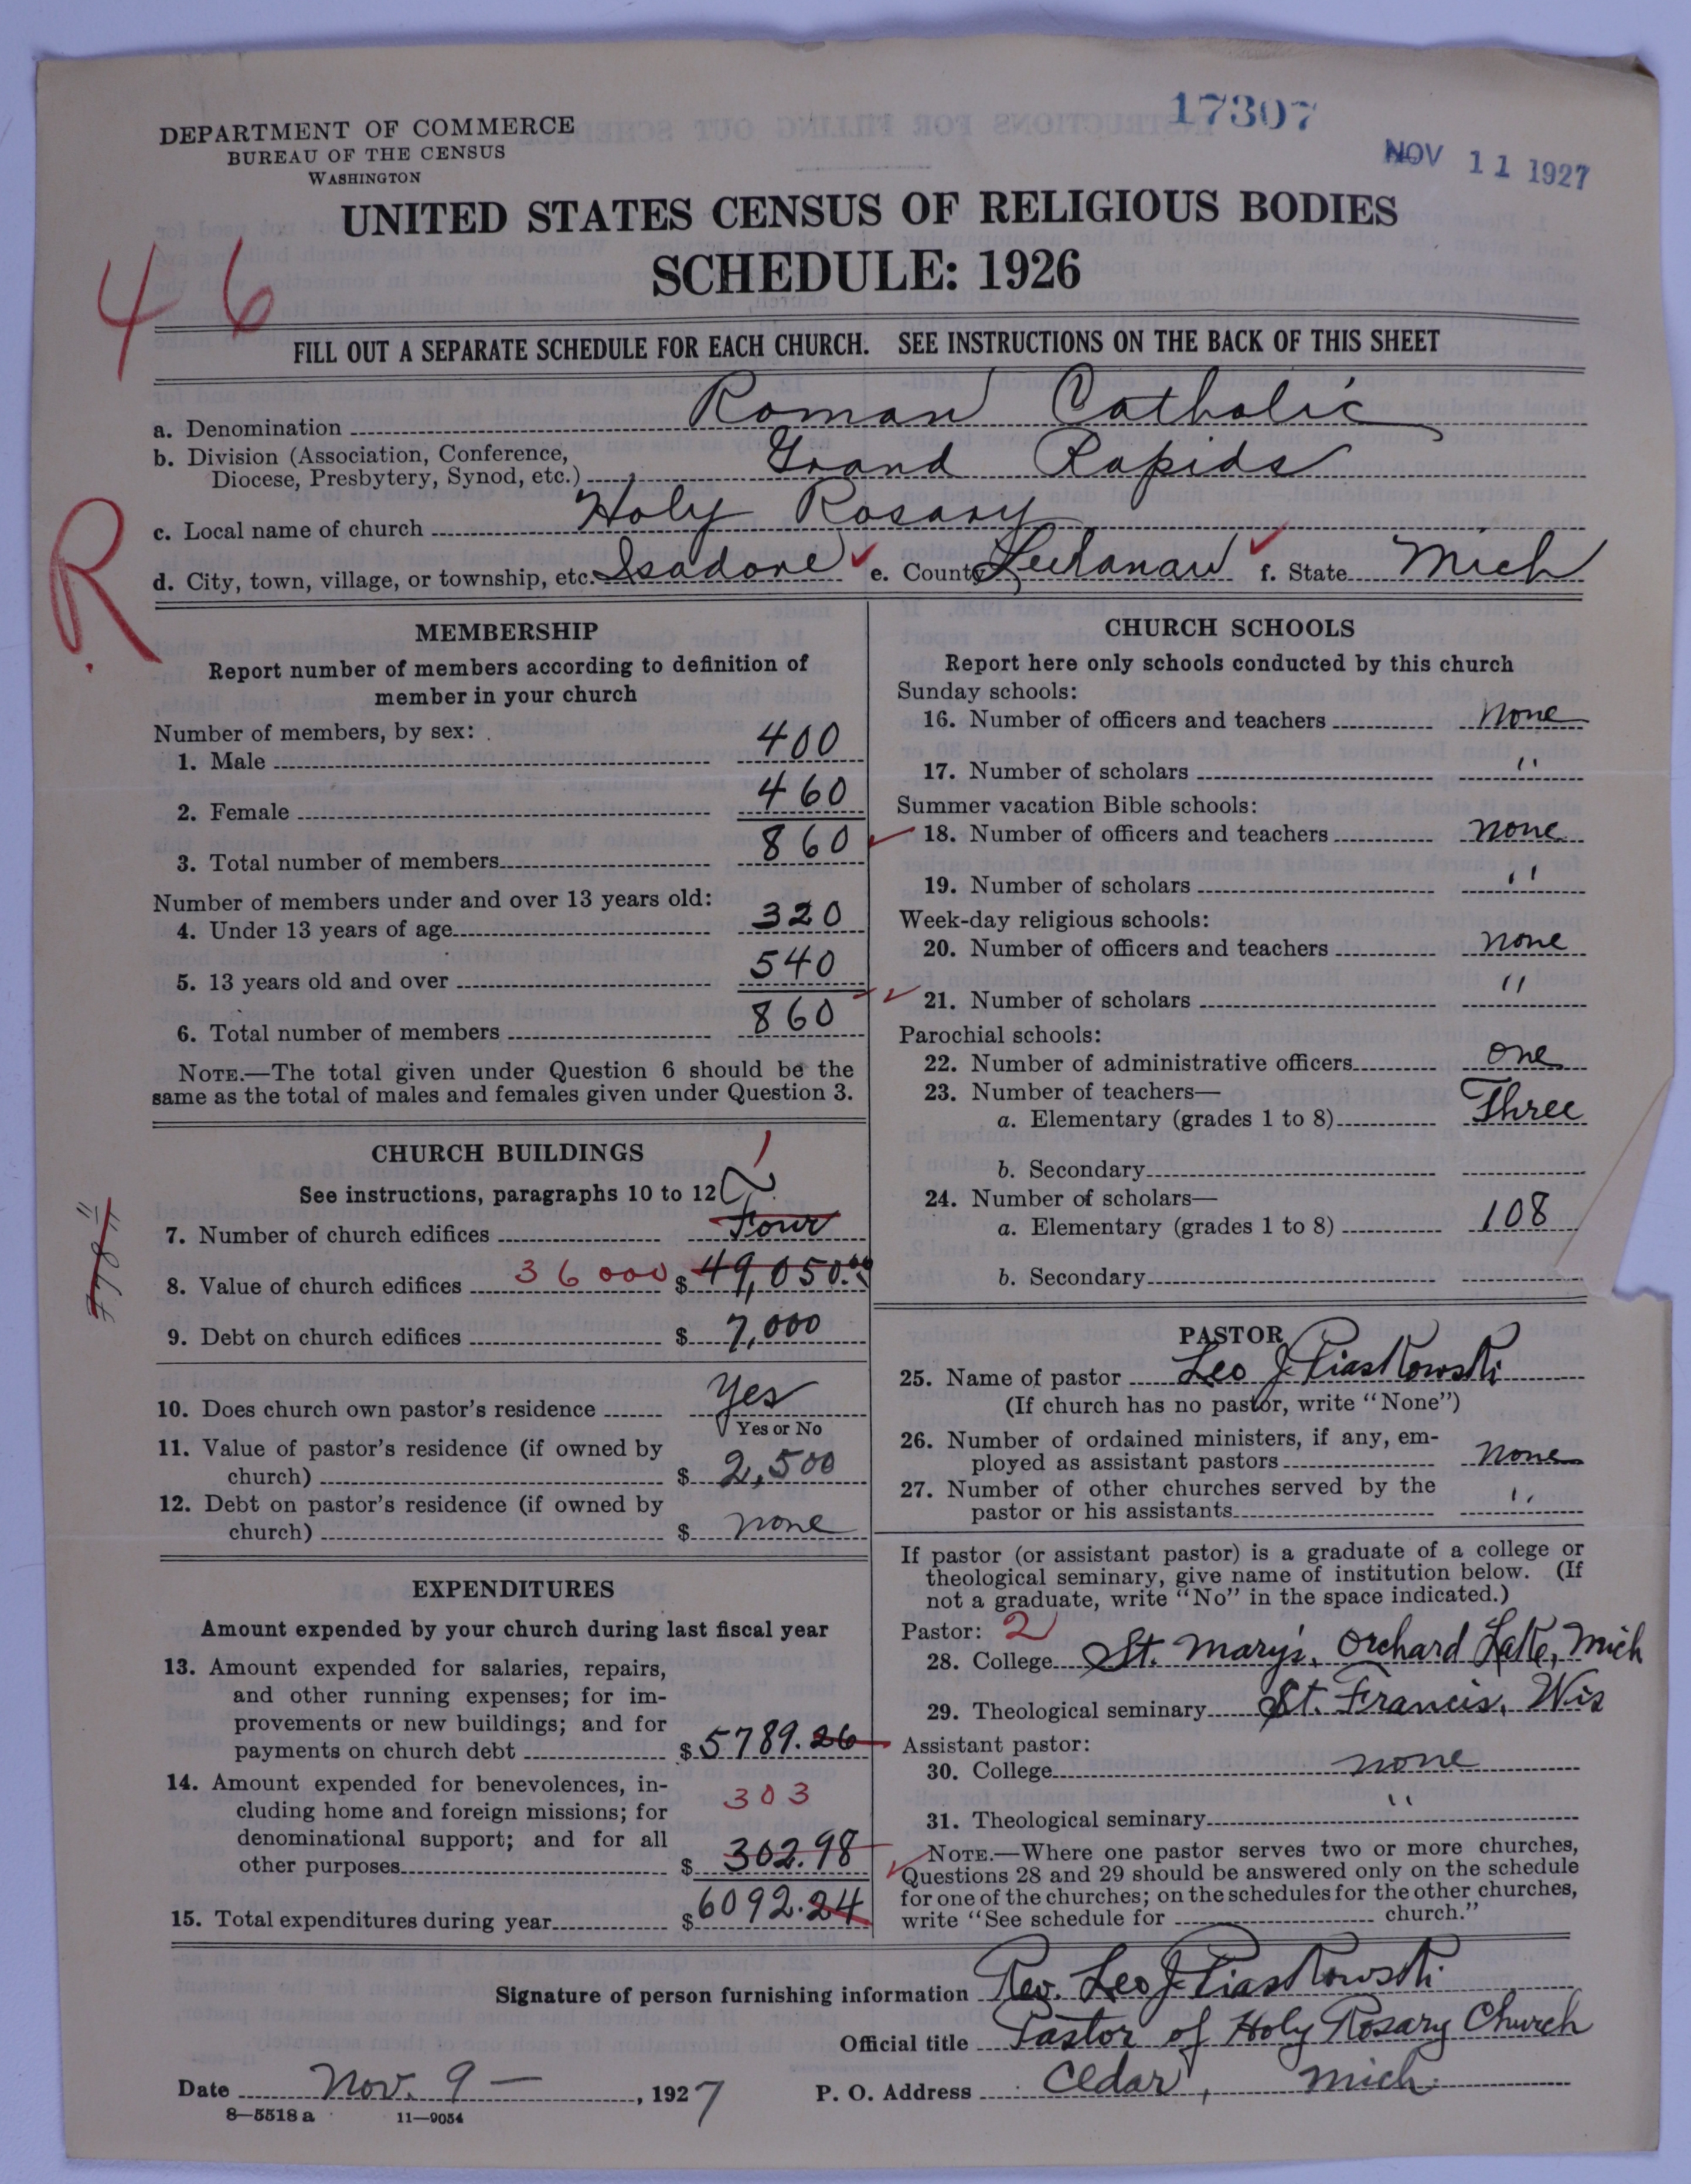 17307
NOV 11 1927
DEPARTMENT OF COMMERCE
BUREAU OF THE CENSUS
WASHINGTON
UNITED STATES CENSUS OF RELIGIOUS BODIES
SCHEDULE: 1926
46
FILL OUT A SEPARATE SCHEDULE FOR EACH CHURCH. SEE INSTRUCTIONS ON THE BACK OF THIS SHEET
a. Denomination Roman Catholic
b. Division (Association, Conference,
Diocese, Presbytery, Synod, etc.) Grand Rapids
c. Local name of church Holy Rosary
R
d. City, town, village, or township, etc. Isadore e. County Leelanaw f. State Mich
MEMBERSHIP
Report number of members according to definition of
member in your church
Number of members, by sex:
1. Male 400
2. Female 460
3. Total number of members 860
Number of members under and over 13 years old:
4. Under 13 years of age 320
5. 13 years old and over 540
6. Total number of members 860
NOTE.—The total given under Question 6 should be the
same as the total of males and females given under Question 3.
CHURCH BUILDINGS
See instructions, paragraphs 10 to 12
1
7. Number of church edifices Four
8. Value of church edifices 36000 $ 49,050.00
9. Debt on church edifices $ 7,000
10. Does church own pastor's residence Yes
Yes or No
11. Value of pastor's residence (if owned by
church) $ 2,500
12. Debt on pastor's residence (if owned by
church) $ none
EXPENDITURES
Amount expended by your church during last fiscal year
13. Amount expended for salaries, repairs,
and other running expenses; for im-
provements or new buildings; and for
payments on church debt $ 5789.26
14. Amount expended for benevolences, in-
cluding home and foreign missions; for
303
denominational support; and for all
other purposes $ 302.98
15. Total expenditures during year $ 6092.24
CHURCH SCHOOLS
Report here only schools conducted by this church
Sunday schools:
16. Number of officers and teachers none
17. Number of scholars "
Summer vacation Bible schools:
18. Number of officers and teachers none
19. Number of scholars "
Week-day religious schools:
20. Number of officers and teachers none
21. Number of scholars "
Parochial schools:
22. Number of administrative officers one
23. Number of teachers—
a. Elementary (grades 1 to 8) Three
b. Secondary
24. Number of scholars—
a. Elementary (grades 1 to 8) 108
b. Secondary
PASTOR
25. Name of pastor Leo J. Piaskowski
(If church has no pastor, write "None")
26. Number of ordained ministers, if any, em-
ployed as assistant pastors none
27. Number of other churches served by the
pastor or his assistants "
If pastor (or assistant pastor) is a graduate of a college or
theological seminary, give name of institution below. (If
not a graduate, write "No" in the space indicated.)
Pastor: 2
28. College St. Mary's, Orchard Lake, Mich
29. Theological seminary St. Francis, Wis
Assistant pastor:
30. College none
31. Theological seminary "
NOTE.—Where one pastor serves two or more churches,
Questions 28 and 29 should be answered only on the schedule
for one of the churches; on the schedules for the other churches,
write "See schedule for church."
Signature of person furnishing information Rev. Leo J. Piaskowski
Official title Pastor of Holy Rosary Church
Date Nov. 9 — , 1927 P. O. Address Cedar, Mich.
8—5518 a 11—9054